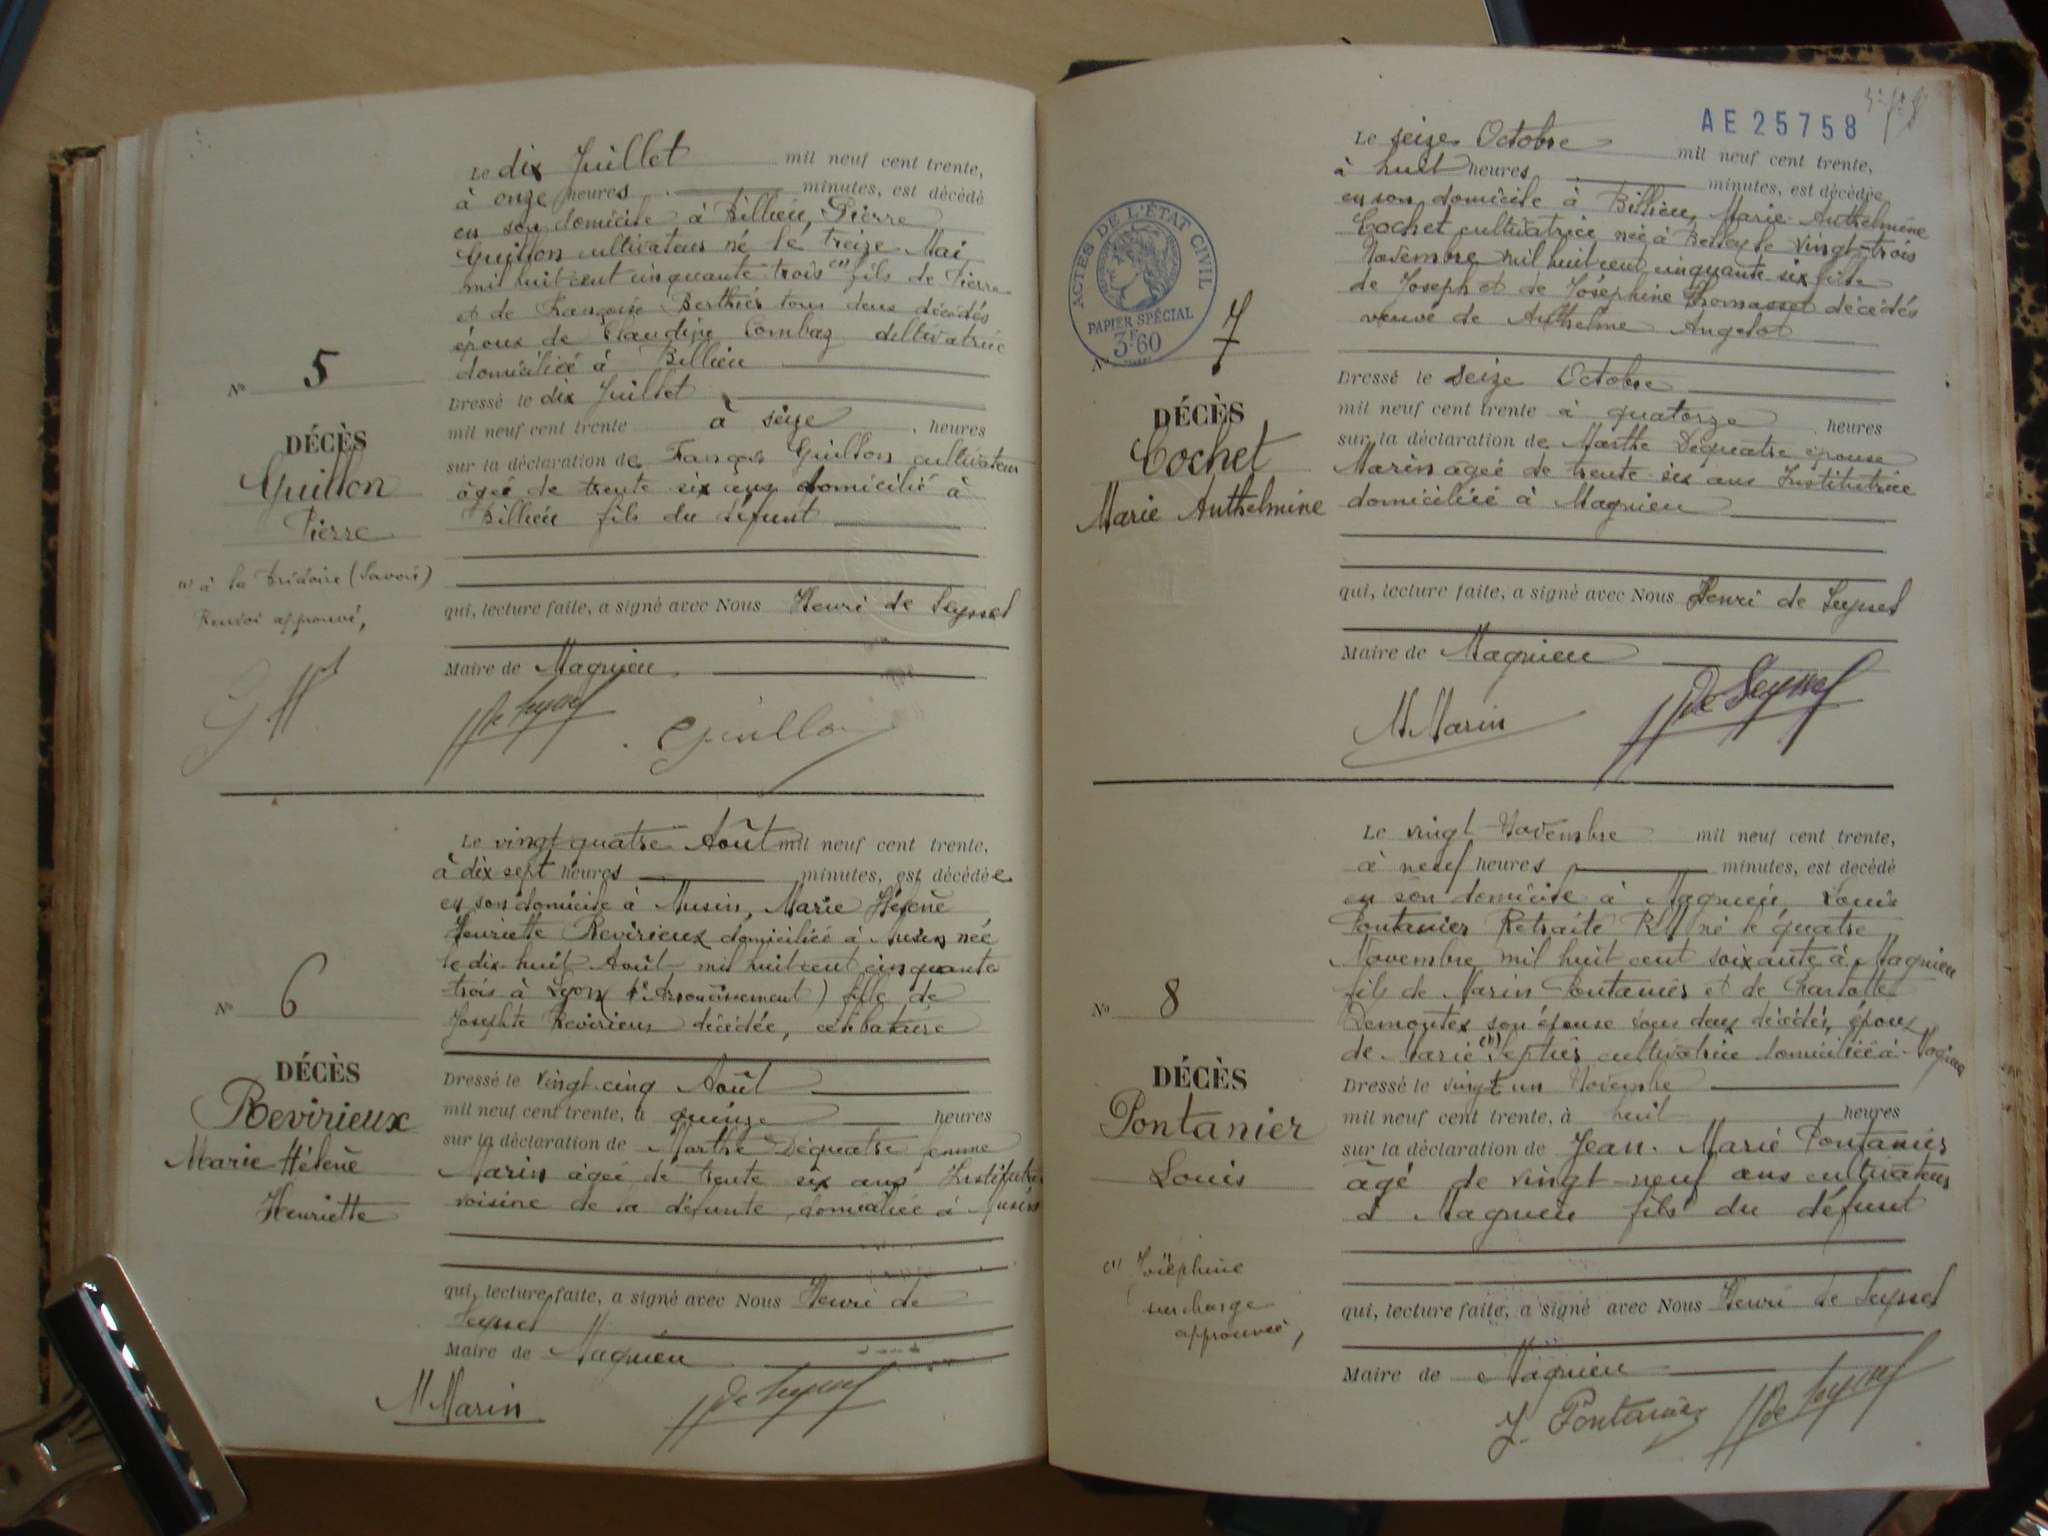 Le dix Juillet mil neuf cent trente,
à onze heures minutes, est décédé
en son domicile à Billieu, Pierre
Guillon cultivateur né le treize Mai
mil huit cent cinquante trois (1) fils de Pierre
et de Françoise Berthier tous deux décédés
époux de Claudine Combaz cultivatrice
domicilié à Billieu
Nº 5
Dressé le dix Juillet
mil neuf cent trente à seize heures
DÉCÈS
sur la déclaration de François Guillon cultivateur
Guillon
âgé de trente six ans domicilié à
Pierre
Billieu fils du défunt
(1) à la Bridoire (Savoie)
Renvoi approuvé,
qui, lecture faite, a signé avec Nous Henri de Seyssel
Maire de Magnieu
de Seyssel
Guillon
Le vingt quatre Août mil neuf cent trente,
à dix sept heures minutes, est décédée
en son domicile à Musin, Marie Hélène
Henriette Revirieux domiciliée à Musin née
le dix-huit Août mil huit cent cinquante
trois à Lyon (Arrondissement) fille de
Nº 6
Josephte Revirieux décédée, célibataire
DÉCÈS
Dressé le vingt-cinq Août
Revirieux
mil neuf cent trente, à quinze heures
sur la déclaration de Marthe Dequatre femme
Marie Hélène
Marin âgée de trente six ans Institutrice
Henriette
voisine de la défunte, domiciliée à Musin
qui, lecture faite, a signé avec Nous Henri de
Seyssel
Maire de Magnieu
M Marin
de Seyssel
AE 25758
Le seize Octobre mil neuf cent trente,
à huit heures minutes, est décédée
en son domicile à Billieu, Marie-Anthelmine
Cochet cultivatrice née à Belley le vingt-trois
Novembre mil huit cent cinquante six fille
de Joseph et de Joséphine Thomasset décédés
veuve de Anthelme Angelot
ACTES DE L'ÉTAT CIVIL
PAPIER SPÉCIAL
3F60
Nº 7
Dressé le seize Octobre
mil neuf cent trente à quatorze heures
DÉCÈS
sur la déclaration de Marthe Dequatre épouse
Cochet
Marin âgée de trente-six ans Institutrice
Marie Anthelmine
domiciliée à Magnieu
qui, lecture faite, a signé avec Nous Henri de Seyssel
Maire de Magnieu
M Marin
de Seyssel
Le vingt Novembre mil neuf cent trente,
à neuf heures minutes, est décédé
en son domicile à Magnieu, Louis
Pontanier Retraité né le quatre
Novembre mil huit cent soixante à Magnieu
fils de Marin Pontanier et de Charlotte
Demontex son épouse tous deux décédés, époux
de Marie (1) cultivatrice domiciliée à Magnieu
Nº 8
DÉCÈS
Dressé le vingt un Novembre
Pontanier
mil neuf cent trente, à huit heures
Louis
sur la déclaration de Jean-Marie Pontanier
âgé de vingt-neuf ans cultivateur
à Magnieu fils du défunt
(1) Joséphine
surcharge
approuvée,
qui, lecture faite, a signé avec Nous Henri de Seyssel
Maire de Magnieu
J. Pontanier
de Seyssel